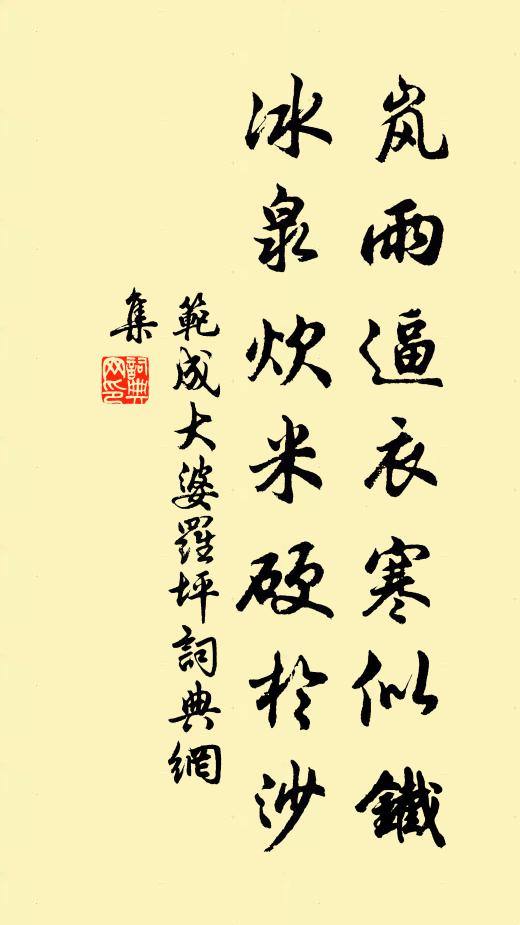 岚雨逼衣寒似鐵
冰泉炊米硬於沙
範成大婆羅坪詞典網
集
詞典网印